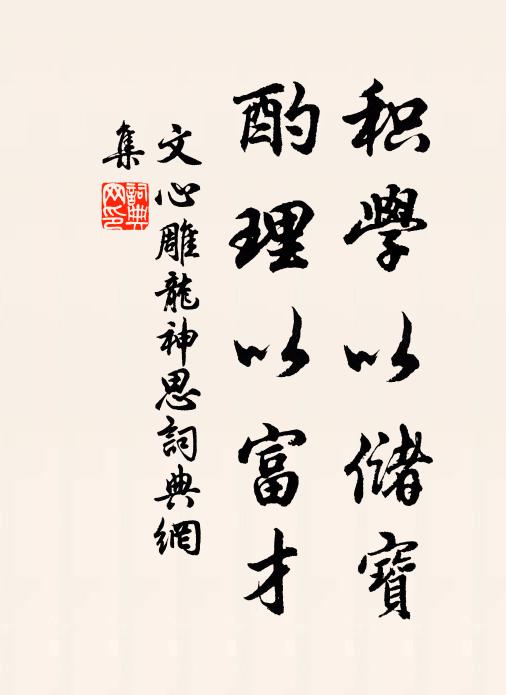 积學以儲寶
酌理以富才
文心雕龍神思詞典網
集
詞典網印